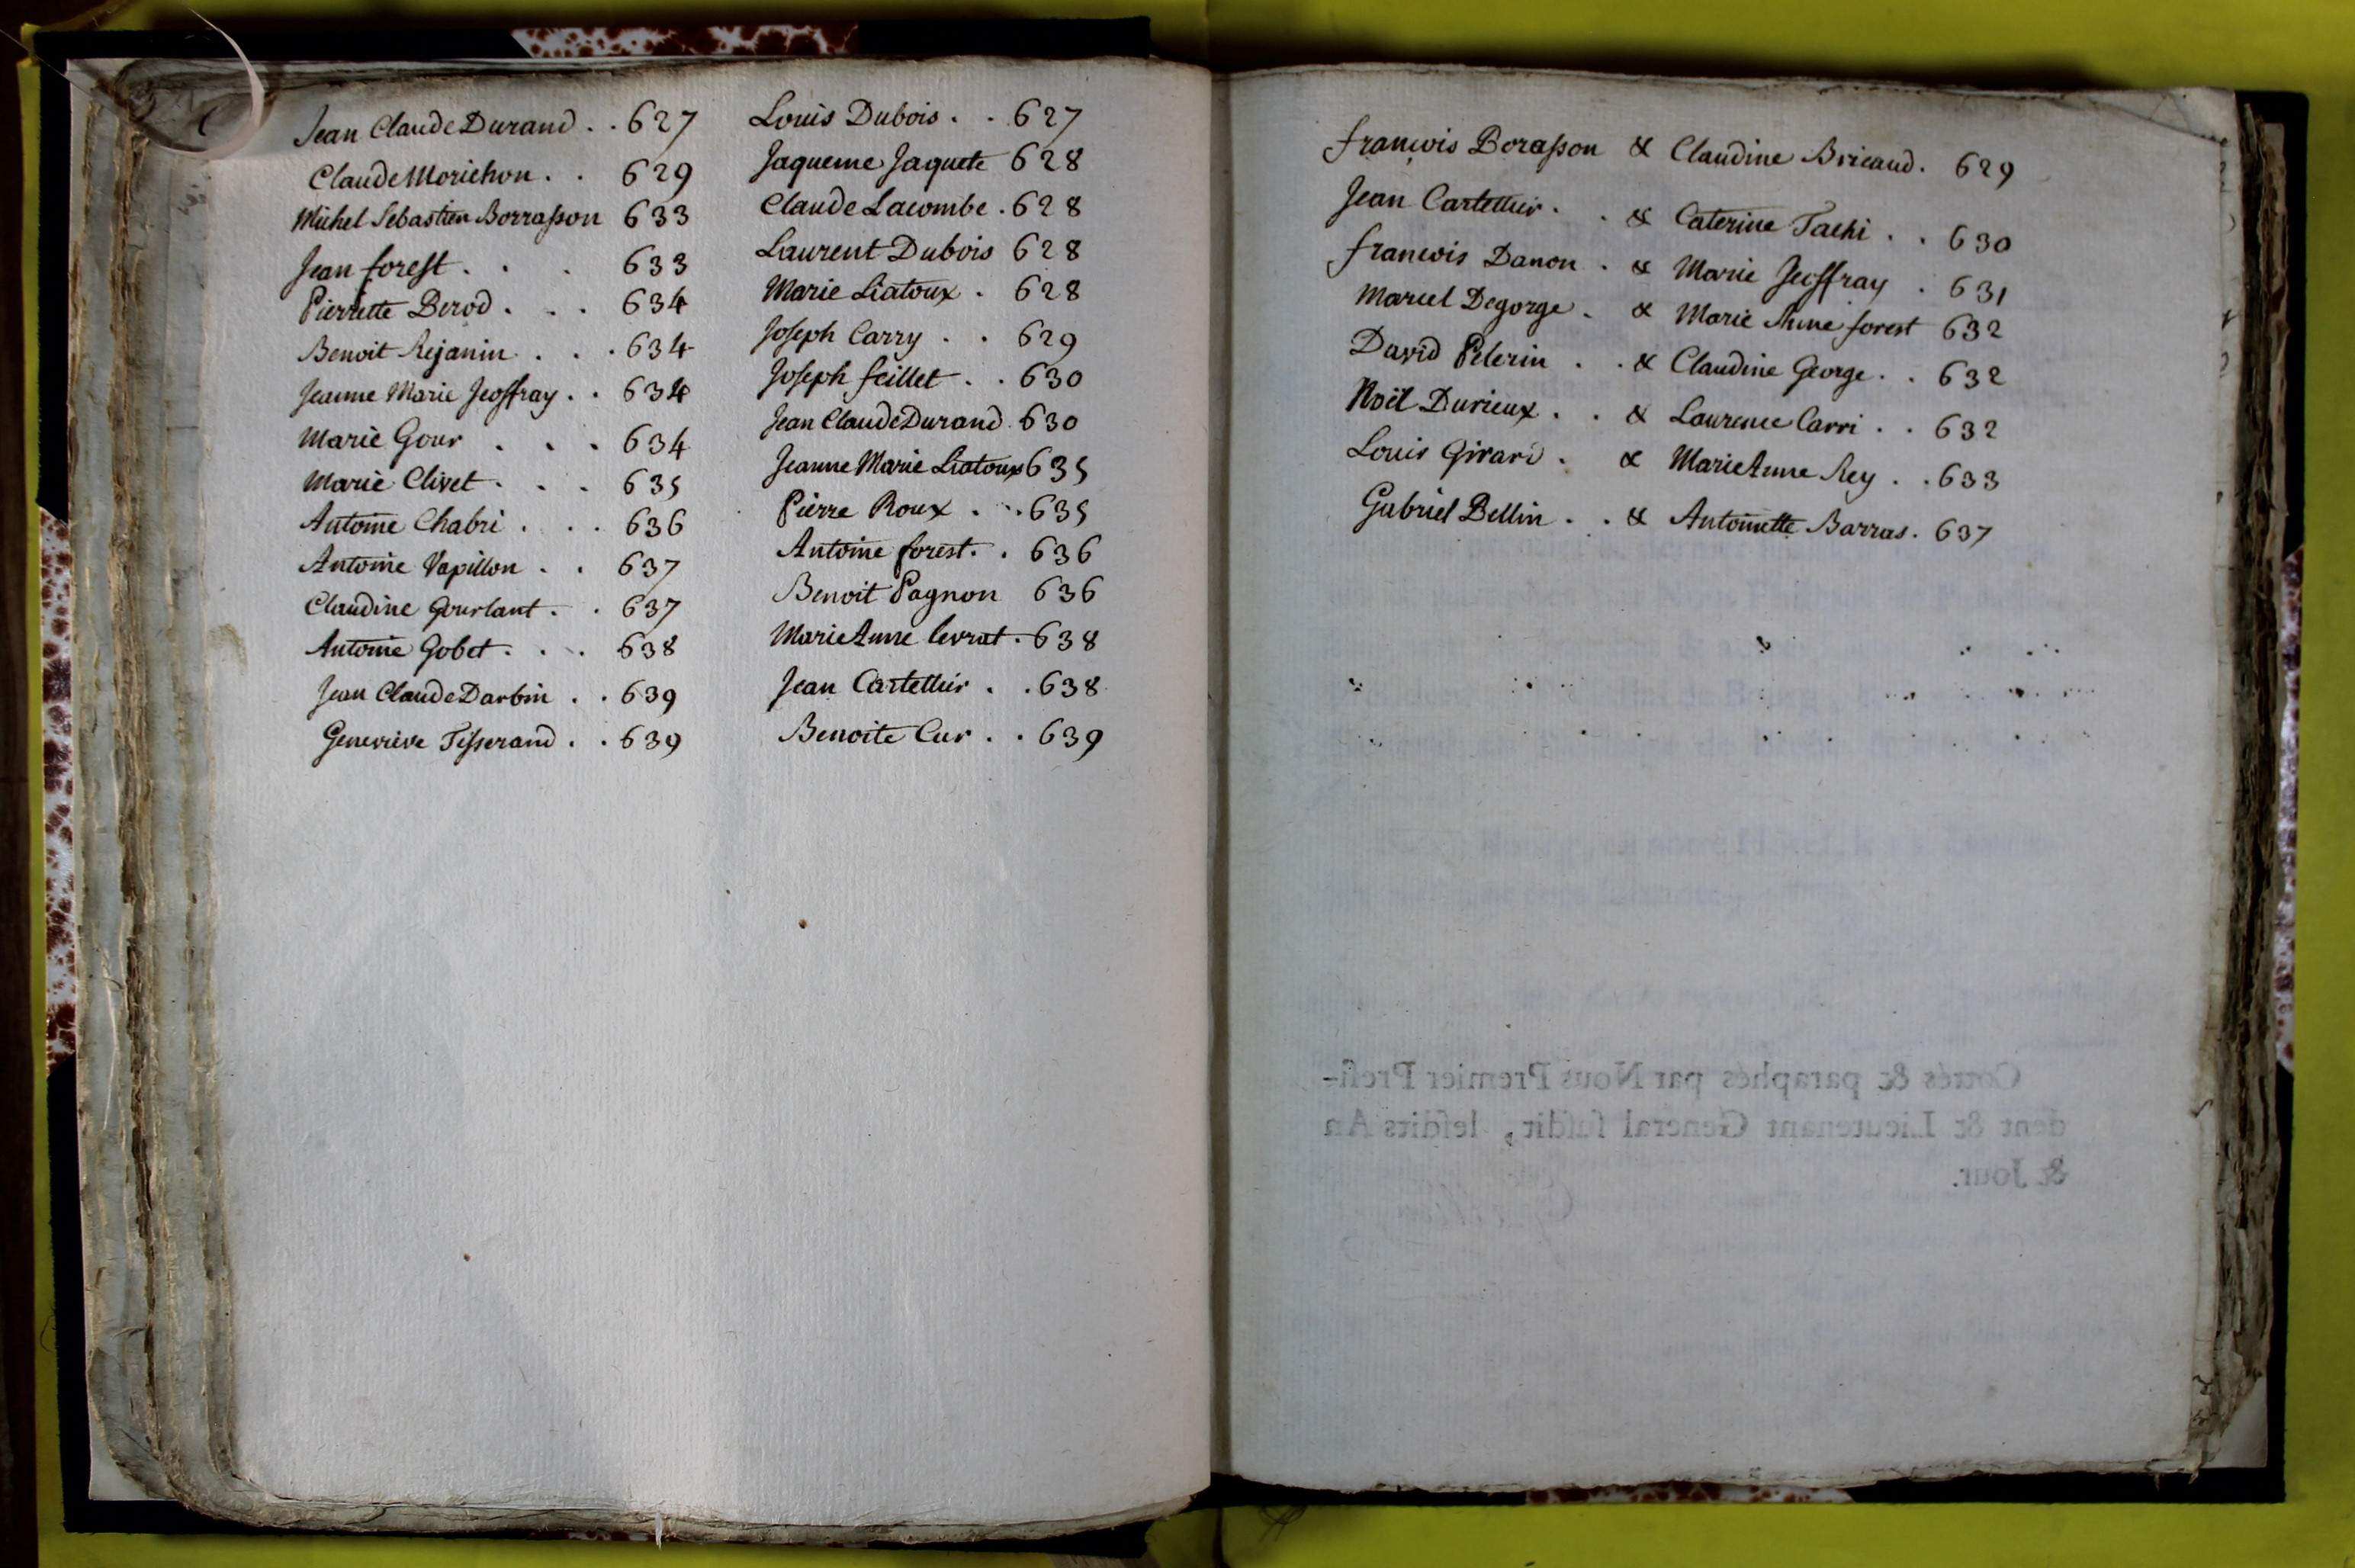 Jean Claude Durand . . 627
Claude Morichon . . 629
Michel Sebastien Borrasson 633
Jean forest . . . 633
Pierrette Berod . . . 634
Benoit Rejanin . . . 634
Jeanne Marie Jeoffray . . 634
Marie Gour . . . 634
Marie Clivet . . . 635
Antoine Chabri . . . 636
Antoine Vapillon . . 637
Claudine Gourlant . . 637
Antoine Gobet . . . 638
Jean Claude Darbin . . 639
Geneviève Tisserand . . 639
Louis Dubois . . 627
Jaqueme Jaquete 628
Claude Lacombe . 628
Laurent Dubois 628
Marie Liatoux . 628
Joseph Carry . . 629
Joseph feillet . . 630
Jean Claude Durand . 630
Jeanne Marie Liatoux 635
Pierre Roux . . . 635
Antoine forest . . 636
Benoit Pagnon 636
Marie Anne levrat . 638
Jean Cartellier . . 638
Benoite Cur . . 639
francois Borasson & Claudine Bricaud . 629
Jean Cartellier . . & Caterine Tachi . . 630
francois Danon . & Marie Jeoffray . 631
Marcel Degorge . & Marie Anne forest 632
David Pelerin . . & Claudine George . . 632
Noël Durieux . . & Laurence Carri . . 632
Louis Girard . & Marie Anne Rey . . 633
Gabriel Bellin . . & Antoinette Barras . 637
Cottés & paraphés par Nous Premier Presi-
dent & Lieutenant General susdit, lesdits An
& Jour.